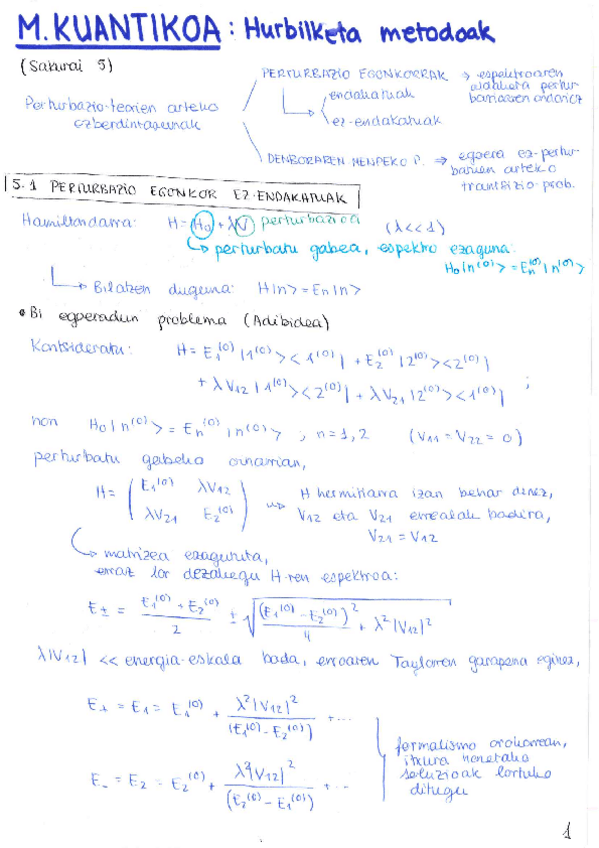 M. KUANTIKOA : Hurbilketa metodoak
(Sakurai 5)
Perturbazio-teorien arteko
ezberdintasunak
PERTURBAZIO EGONKORRAK → espektroaren
aldaketa pertur-
bazioaren ondorioz
endakatuak
ez-endakatuak
DENBORAREN MENPEKO P. → egoera ez-pertur-
batuen arteko
trantsizio-prob.
5.1 PERTURBAZIO EGONKOR EZ-ENDAKATUAK
Hamiltondarra: H = H₀ + λV perturbazioa (λ<<1)
↳ perturbatu gabea, espektro ezaguna.
H₀|n⁽⁰⁾> = Eₙ⁽⁰⁾|n⁽⁰⁾>
↳ Bilatzen duguna: H|n> = Eₙ|n>
• Bi egoeradun problema (Adibidea)
Kontsideratu: H = E₁⁽⁰⁾|1⁽⁰⁾><1⁽⁰⁾| + E₂⁽⁰⁾|2⁽⁰⁾><2⁽⁰⁾|
+ λV₁₂|1⁽⁰⁾><2⁽⁰⁾| + λV₂₁|2⁽⁰⁾><1⁽⁰⁾| ;
non H₀|n⁽⁰⁾> = Eₙ⁽⁰⁾|n⁽⁰⁾> ; n=1,2 (V₁₁ = V₂₂ = 0)
perturbatu gabeko oinarrian,
H = ( E₁⁽⁰⁾ λV₁₂
λV₂₁ E₂⁽⁰⁾ ) → H hermitiarra izan behar denez,
V₁₂ eta V₂₁ errealak badira,
V₂₁ = V₁₂
↳ matrizea ezagututa,
erraz lor dezakegu H-ren espektroa:
E± = (E₁⁽⁰⁾ + E₂⁽⁰⁾)/2 ± √((E₁⁽⁰⁾ - E₂⁽⁰⁾)²/4 + λ²|V₁₂|²)
λ|V₁₂| << energia-eskala bada, erroaren Taylorren garapena eginez,
E₊ = E₁ = E₁⁽⁰⁾ + λ²|V₁₂|²/(E₁⁽⁰⁾ - E₂⁽⁰⁾) + ...
E₋ = E₂ = E₂⁽⁰⁾ + λ²|V₁₂|²/(E₂⁽⁰⁾ - E₁⁽⁰⁾) + ...
formalismo orokorrean,
itxura honetako
soluzioak lortuko
ditugu
1